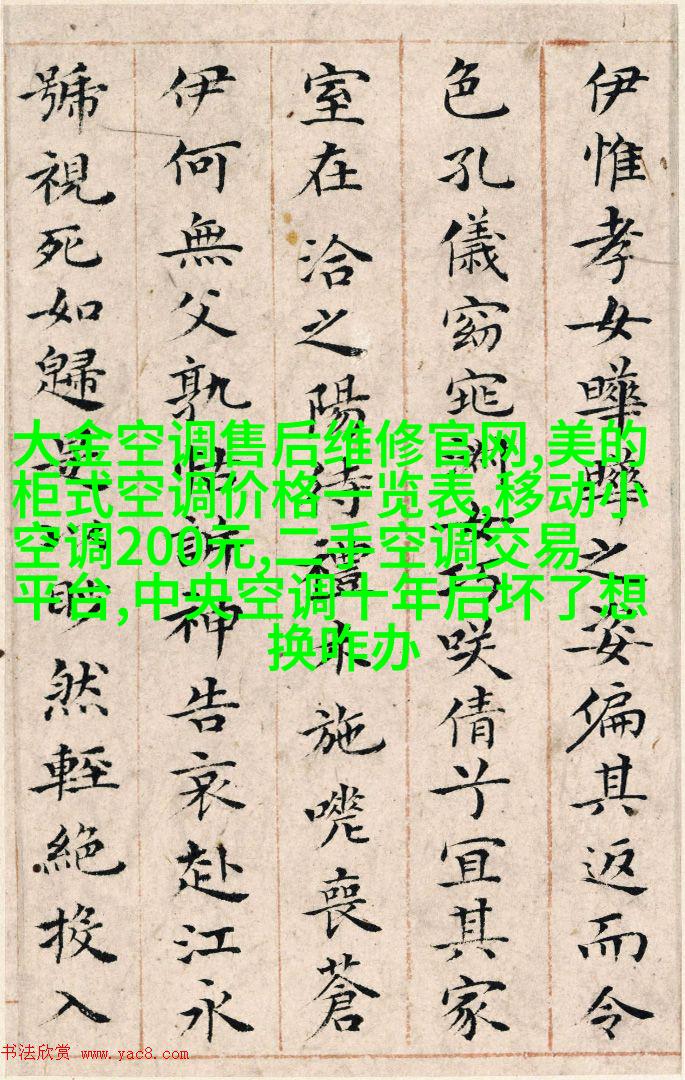 伊惟孝女曄曄之姿偏其返而令
色孔儀窈窕淑女巧咲倩兮宜其家
室在洽之陽待禮未施嗟喪蒼
伊何無父孰怙訴神告哀赴江永
號視死如歸是以眇然輕絕投入
大金空调售后维修官网,美的
柜式空调价格一览表,移动小
空调200元,二手空调交易
平台,中央空调十年后坏了想
换咋办
书法欣赏 www.yac8.com